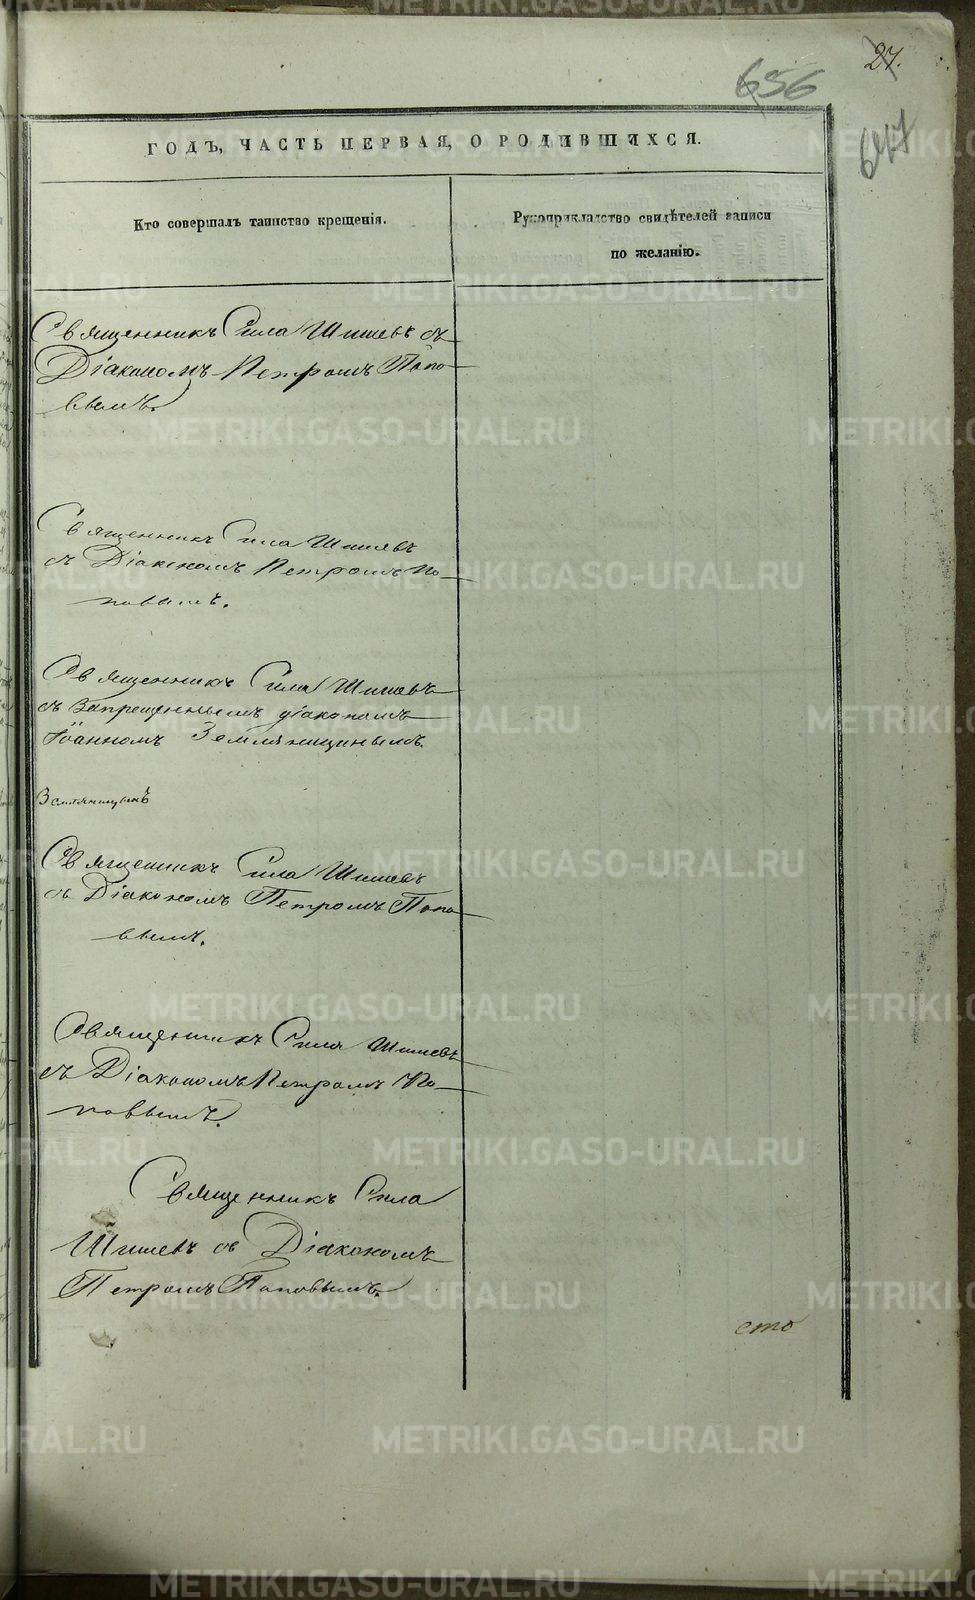 27.
656
647
ГОДЪ, ЧАСТЬ ПЕРВАЯ, О РОДИВШИХСЯ.
Кто совершалъ таинство крещенія.
Рукоприкладство свидѣтелей записи
по желанію.
Священникъ Сила Шишевъ съ
Діакономъ Петромъ Попо-
вымъ.
Священникъ Сила Шишевъ
съ Діакономъ Петромъ По-
повымъ.
Священникъ Сила Шишевъ
съ Запрещеннымъ діакономъ
Іоанномъ Земляницинымъ.
Земляницынъ
Священникъ Сила Шишевъ
съ Діакономъ Петромъ Попо-
вымъ.
Священникъ Сила Шишевъ
съ Діакономъ Петромъ По-
повымъ.
Священникъ Сила
Шишевъ съ Діакономъ
Петромъ Поповымъ.
сто
METRIKI.GASO-URAL.RU